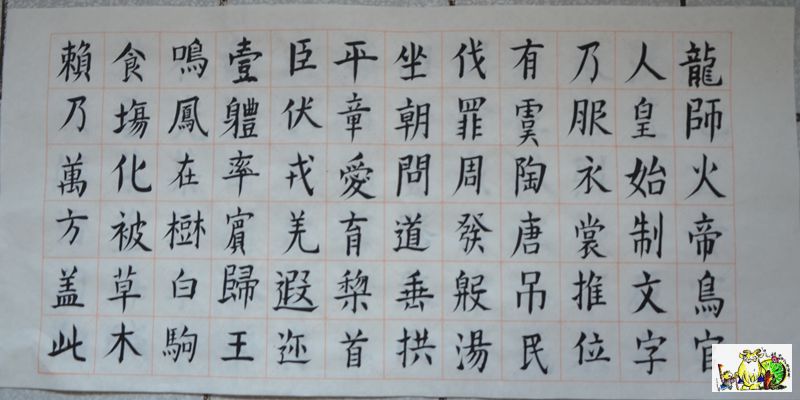 龍師火帝鳥官
人皇始制文字
乃服衣裳推位
有虞陶唐吊民
伐罪周發殷湯
坐朝問道垂拱
平章愛育黎首
臣伏戎羌遐迩
壹軆率賓歸王
鳴鳳在樹白駒
食塲化被草木
賴乃萬方盖此